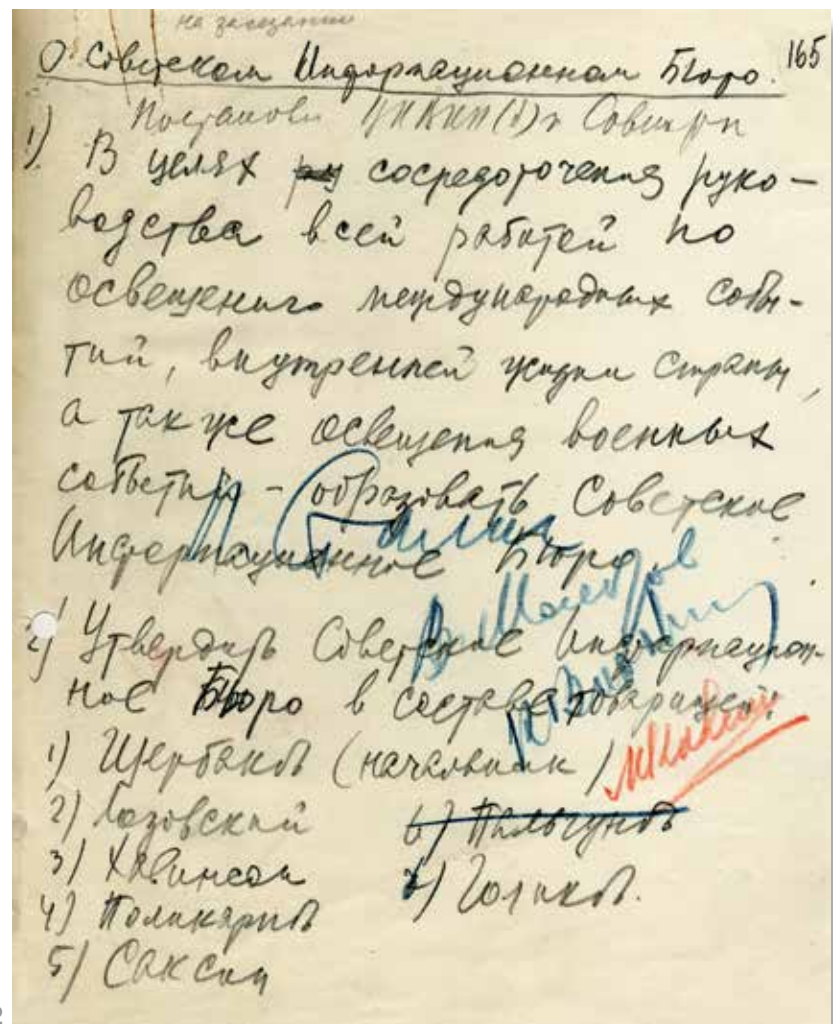 на заседании
О Советском Информационном Бюро. 165
Постановл. ЦК ВКП(б) и Совнарк
1) В целях ру сосредоточения руко-
водства всей работой по
освещению международных собы-
тий, внутренней жизни страны,
а также освещения военных
событий - образовать Советское
И. Сталин
Информационное Бюро.
В. Молотов
2) Утвердить Советское Информацион-
ное Бюро в составе товарищей:
1) Щербаков (начальник)
2) Лозовский 6) Пальгунов
3) Хавинсон 6) Голиков.
4) Поликарпов
5) Саксин